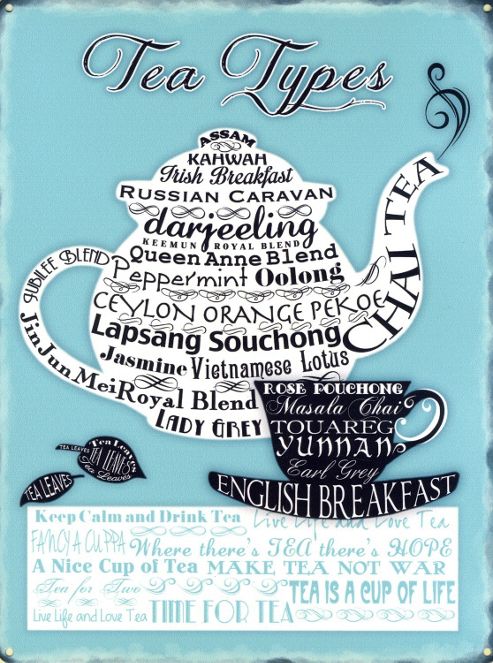 Tea Types
ASSAM
KAHWAH
Irish Breakfast
RUSSIAN CARAVAN
darjeeling
KEEMUN ROYAL BLEND
Queen Anne Blend
Peppermint Oolong
CEYLON ORANGE PEKOE
Lapsang Souchong
Jasmine Vietnamese Lotus
JUBILEE BLEND
Jin Jun Mei Royal Blend
LADY GREY
CHAI TEA
ROSE POUCHONG
Masala Chai
TOUAREG
YUNNAN
Earl Grey
ENGLISH BREAKFAST
TEA LEAVES
Tea Leaves
TEA LEAVES
Tea Leaves
TEA LEAVES
Keep Calm and Drink Tea Live Life and Love Tea
FANCY A CUPPA Where there's TEA there's HOPE
A Nice Cup of Tea MAKE TEA NOT WAR
Tea for Two TEA IS A CUP OF LIFE
Live Life and Love Tea TIME FOR TEA